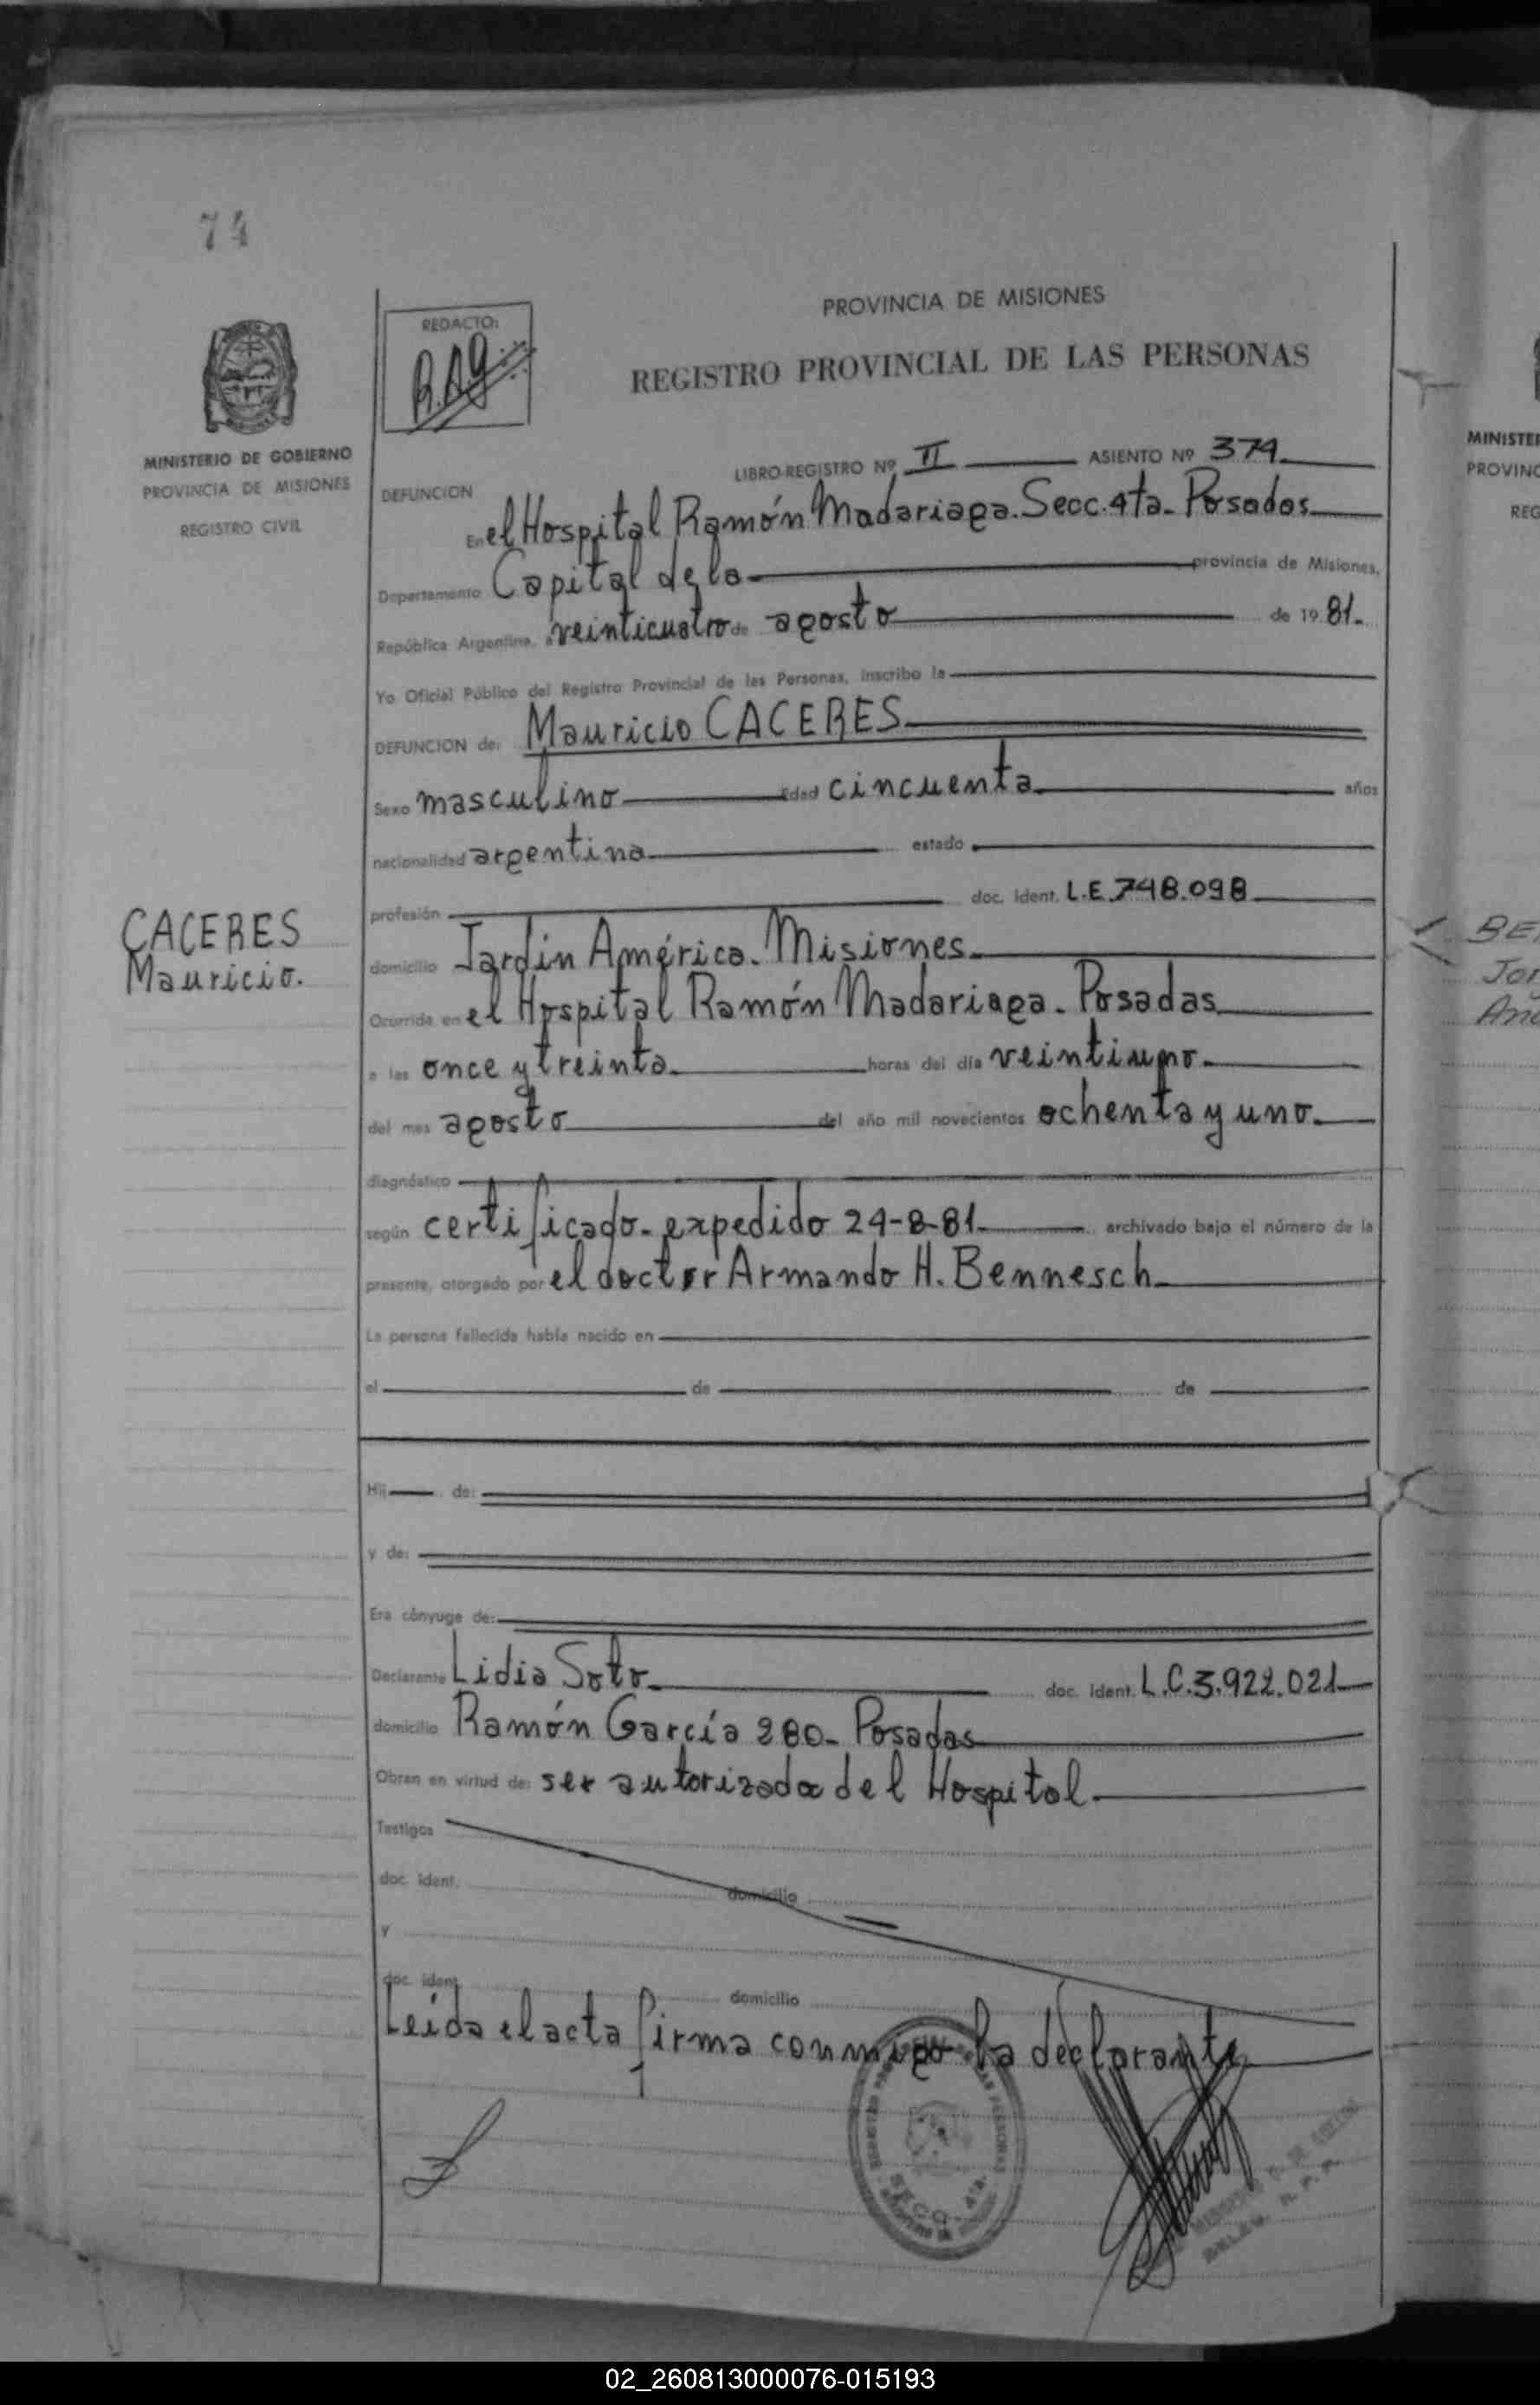 74
PROVINCIA DE MISIONES
REDACTO:
REGISTRO PROVINCIAL DE LAS PERSONAS
MINISTERIO DE GOBIERNO
PROVINCIA DE MISIONES
REGISTRO CIVIL
LIBRO-REGISTRO Nº II ASIENTO Nº 374
DEFUNCION
En el Hospital Ramón Madariaga. Secc. 4ta. Posadas
Departamento Capital de la provincia de Misiones,
República Argentina, a veinticuatro de agosto de 19 81.
Yo Oficial Público del Registro Provincial de las Personas, inscribo la
DEFUNCION de: Mauricio CACERES
Sexo masculino Edad cincuenta años
nacionalidad argentina estado
profesión doc. ident. L.E. 748.098
CACERES
Mauricio.
domicilio Jardín América. Misiones.
Ocurrida en el Hospital Ramón Madariaga. Posadas
a las once y treinta horas del día veintiuno
del mes agosto del año mil novecientos ochenta y uno.
diagnóstico
según certificado expedido 24-8-81 archivado bajo el número de la
presente, otorgado por el doctor Armando H. Bennesch
La persona fallecida había nacido en
el de de
Hij de:
y de:
Era cónyuge de:
Declarante Lidia Soto doc. ident. L.C. 3.922.021
domicilio Ramón García 280 Posadas
Obran en virtud de: ser autorizada del Hospital
Testigos
doc. ident. domicilio
y
doc. ident. domicilio
Leída el acta firma conmigo la declarante
SECC. 4ta.
MINISTER
PROVINC
REG
BE
Jor
Ana
02_260813000076-015193